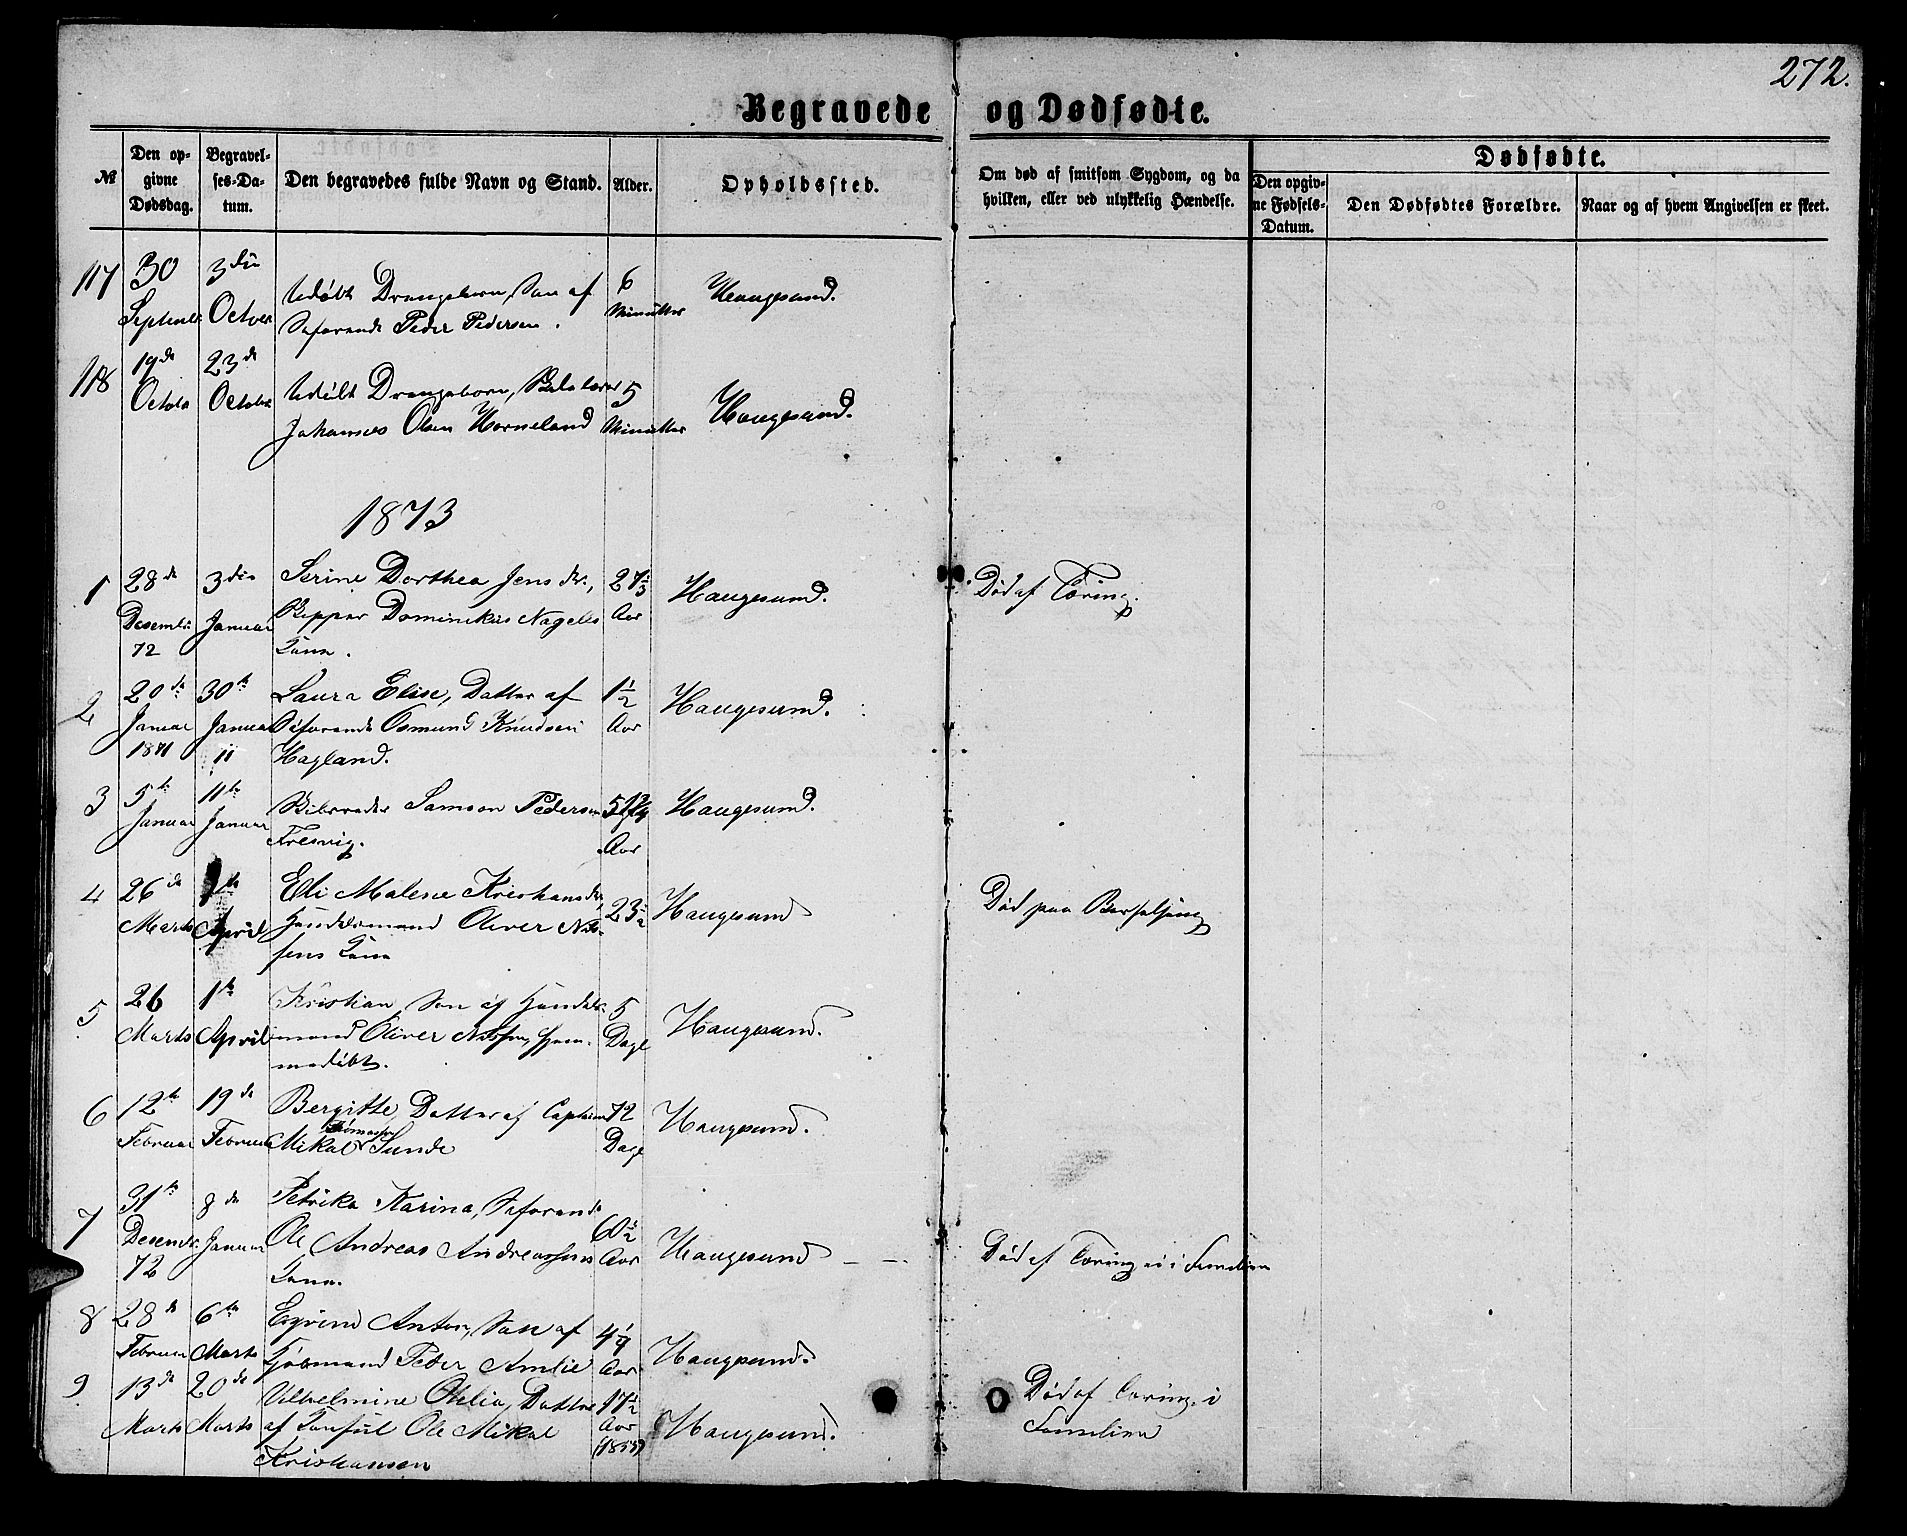 272.
Begravede og Dødfødte.
№
Den opgivne Dødsdag.
Begravelses-Datum.
Den begravedes fulde Navn og Stand.
Alder.
Opholdssted.
Om død af smitsom Sygdom, og da hvilken, eller ved ulykkelig Hændelse.
Dødfødte.
Den opgivne Fødsels-Datum.
Den Dødfødtes Forældre.
Naar og af hvem Angivelsen er skeet.
117 30 3die
Udøbt Drengebarn, Søn af 6 Haugesund.
Septembr Octber
Søfarende Peder Pedersen. Minutter
118 19de 23de
Octobr Octobr Udøbt Drengebarn, 5 Haugesund.
Johannes Olsen Horneland Minutter
1873
1 28de 3die Serine Dorthea Jensdtr., 27 Haugesund. Død af Tæring.
Desembr Januar Dominikus Nagels Aar
72 Kone.
2 20de 30te Laura Elise, Datter af 1½ Haugesund.
Januar Januar Søfarende Osmund Knudsen Aar
1871 11 Hagland.
3 5te 11te Samson Pedersen Haugesund.
Januar Januar Aar
4 26de April Eli Malene Kristiansdtr, 23½ Haugesund Død paa Barselseng
Marts Handelsmand Oliver Nilsens Kone
5 26 1te Kristian, Søn af Handels- 5 Haugesund.
Marts April mand Oliver Nilssen, hjem- Dage
medøbt.
6 12te 19de Bergitte, Datter af Captain 12 Haugesund.
Februar Februar Mikal Tømassen Sunde Dage
7 31te 8de Petrika Karina, Søfarende 60½ Haugesund Død af Tæring ei i Familien
Desembr. Januar Ole Andreas Andreassens Aar
72 Kone.
8 28de 6te Eyvind Anton, Søn af 4 Haugesund.
Februar Marts Kjøbmand Peder Amlie Aar
9 13de 20de Vilhelmine Otelia, Datter 17½ Haugesund. Død af Tæring. i
Marts Marts af Konsul Ole Mikal Aar Familien
Kristiansen (1855)